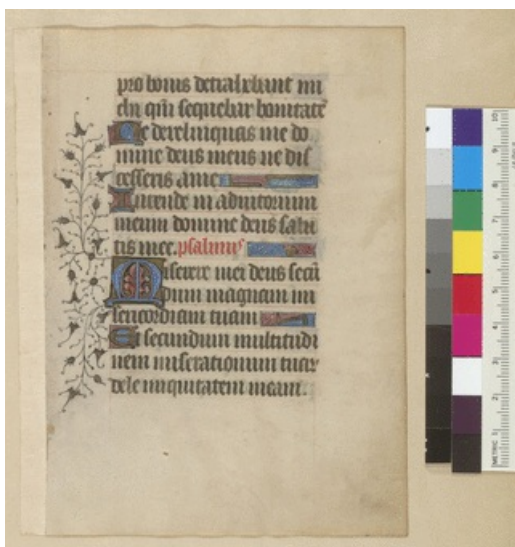 pro bonis detrahebant mi
chi qm̄ sequebar bonitatē
Ne derelinquas me do
mine deus meus ne dis
cesseris a me
Intende in adiutorium
meum domine deus salu
tis mee. psalmus
Miserere mei deus secū
dum magnam mi
sericordiam tuam
Et secundum multitudi
nem miserationum tuar
dele iniquitatem meam.
10
9
8
7
6
5
4
3
2
METRIC 1